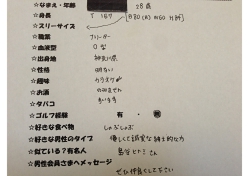 ☆なまえ・年齢 28歳
☆身長 T 167
☆スリーサイズ
☆職業 フリーター
☆血液型 O型
☆出身地 神奈川県
☆性格 明るい
☆趣味 カラオケ
☆お酒 のめません
☆タバコ
☆ゴルフ経験 有・無
☆好きな食べ物 しゃぶしゃぶ
☆好きな男性のタイプ 優しくて誠実な紳士的な方
☆似ている?有名人 島谷ひとみさん
☆男性会員さまへメッセージ
ぜひ仲良くしてください